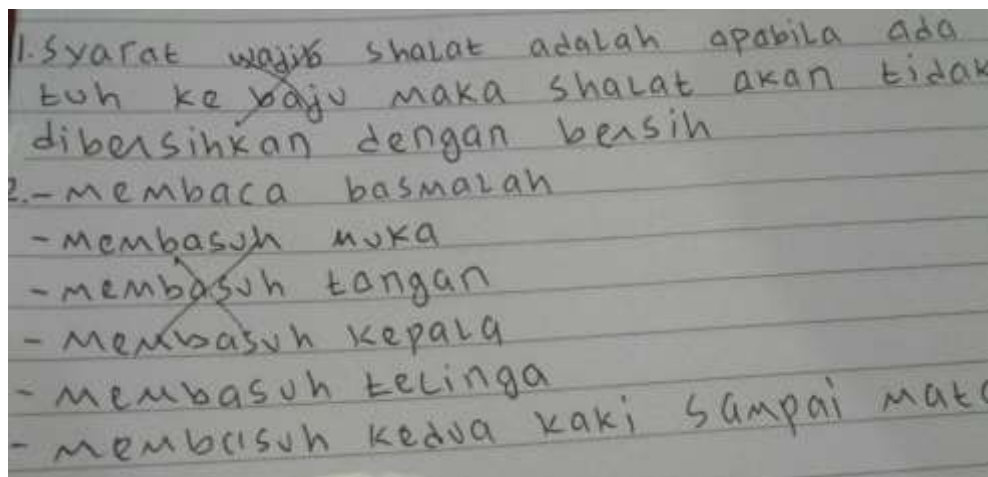 1. Syarat wajib shalat adalah apabila ada
tuh ke baju maka shalat akan tidak
dibersihkan dengan bersih
2. - membaca basmalah
- Membasuh muka
- membasuh tangan
- Membasuh kepala
- membasuh telinga
- membasuh kedua kaki sampai mata